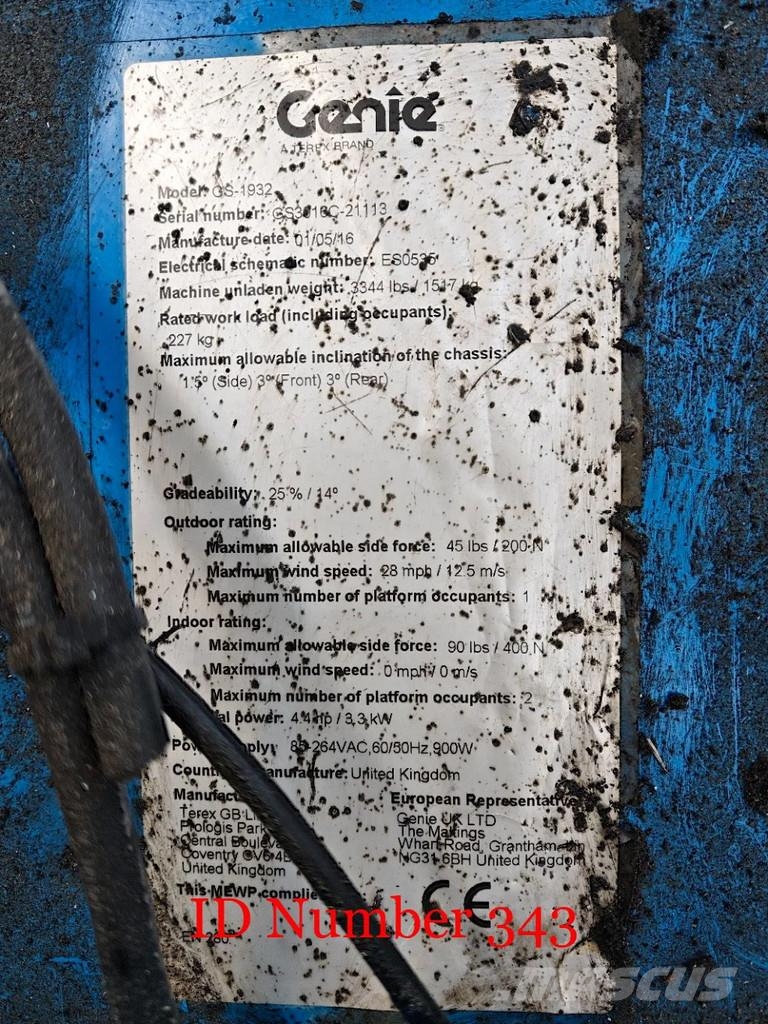 Genie
A TEREX BRAND
Model: GS-1932
Serial number: GS3016C-21113
Manufacture date: 01/05/16
Electrical schematic number: ES0535
Machine unladen weight: 3344 lbs / 1517 kg
Rated work load (including occupants):
227 kg
Maximum allowable inclination of the chassis:
1.5º (Side) 3º (Front) 3º (Rear)
Gradeability: 25 % / 14º
Outdoor rating:
Maximum allowable side force: 45 lbs / 200 N
Maximum wind speed: 28 mph / 12.5 m/s
Maximum number of platform occupants: 1
Indoor rating:
Maximum allowable side force: 90 lbs / 400 N
Maximum wind speed: 0 mph / 0 m/s
Maximum number of platform occupants: 2
al power: 4.4 hp / 3,3 kW
85-264VAC,60/50Hz,900W
anufacture: United Kingdom
Manufac European Representative
Terex GB Genie UK LTD
Prologis Park The Maltings
Central Wharf Road, Grantham,
Coventry NG31 6BH United Kingdom
United Kingdom
This MEWP complie
CE
ID Number 343
EN 280
mascus